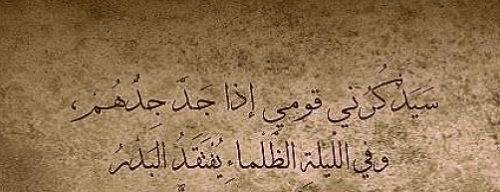 سَيَذْكُرُني قومي إذا جَدَّ جِدُّهُمْ،
وفي اللّيلةِ الظَّلْماءِ يُفْتَقَدُ البَدْرُ